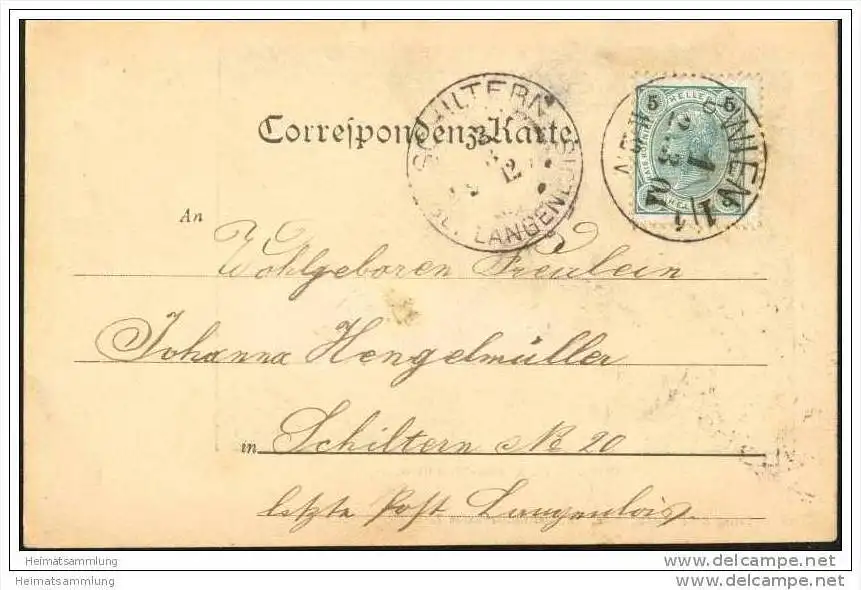 SCHILTERN
LANGENLOIS
5 HELLER 5
WIEN
1/1
Correspondenz-Karte
An
Wohlgeboren Freulein
Johanna Hengelmüller
in Schiltern No 20
letzte Post Langenlois.
Heimatsammlung
Heimatsammlung
delcampe.net
delcampe.net